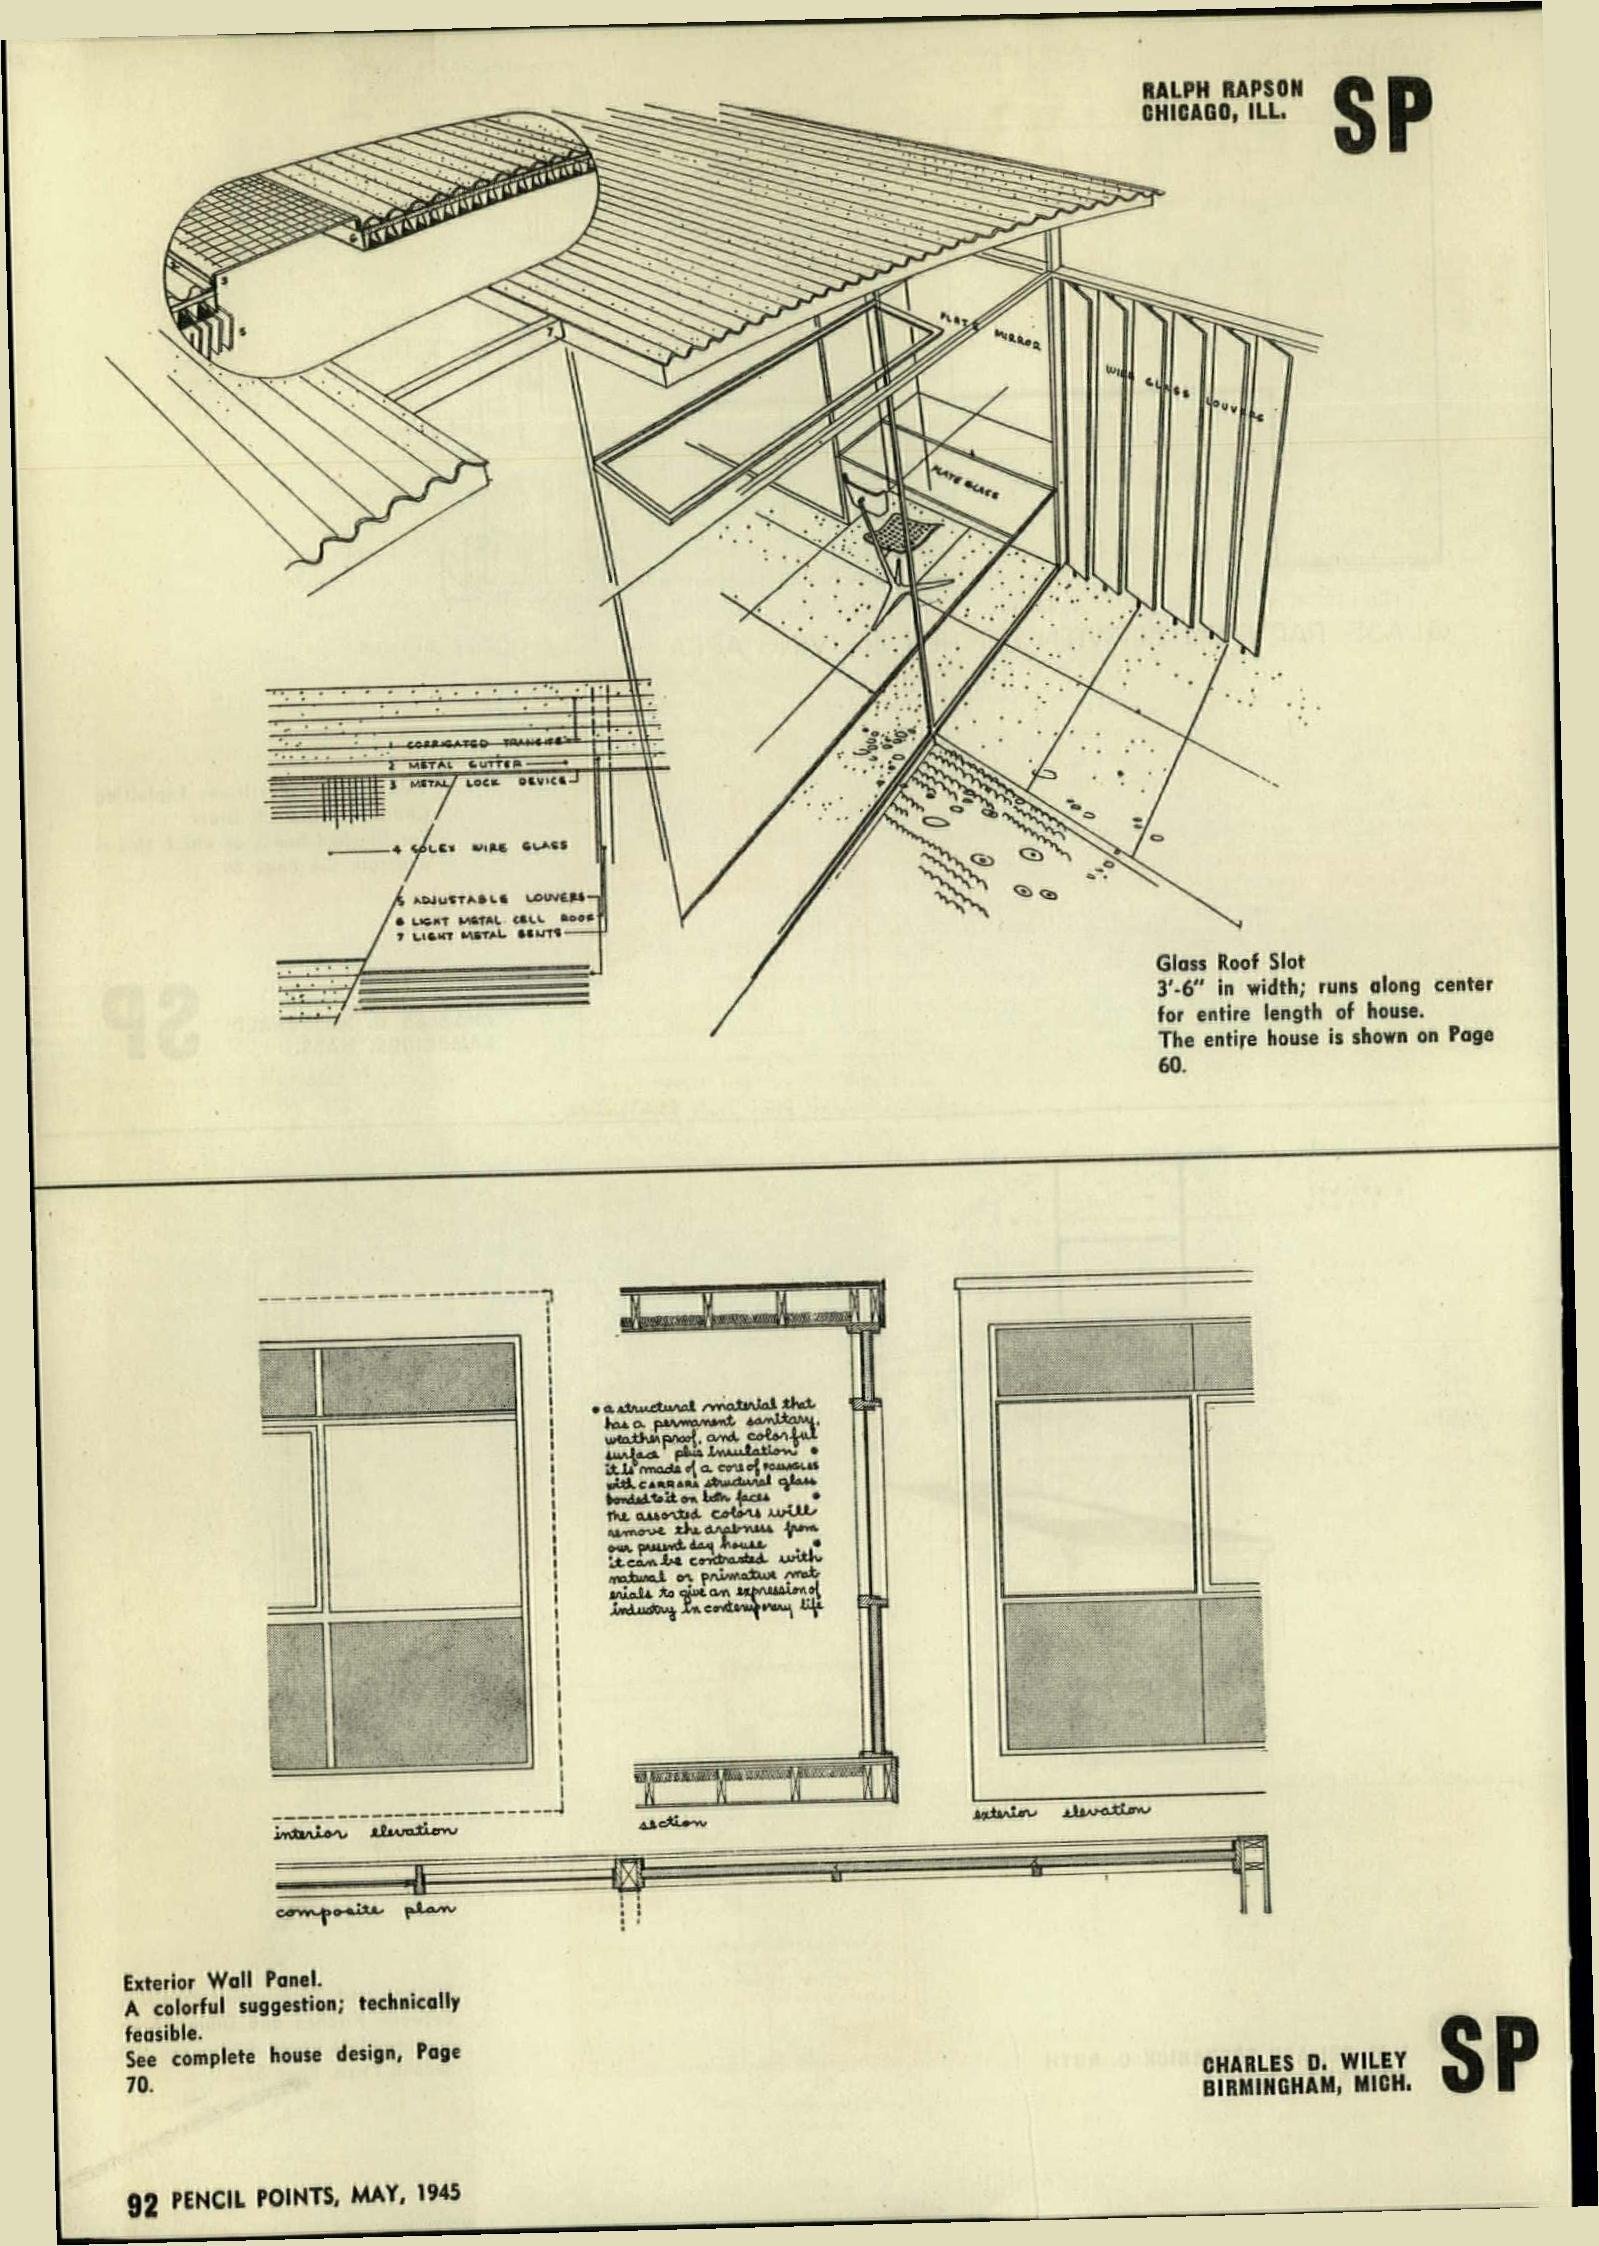 RALPH RAPSON
CHICAGO, ILL.
SP
FLAT MIRROR
WIRE GLASS LOUVERS
PLATE GLASS
7
6
3
5
1 CORRIGATED TRANSITE
2 METAL GUTTER
3 METAL LOCK DEVICE
4 SOLEX WIRE GLASS
5 ADJUSTABLE LOUVERS
6 LIGHT METAL CELL ROOF
7 LIGHT METAL BENTS
Glass Roof Slot
3'-6" in width; runs along center
for entire length of house.
The entire house is shown on Page
60.
• a structural material that
has a permanent sanitary,
weatherproof, and colorful
surface plus insulation •
it is made of a core of FOAMGLAS
with CARRARA structural glass
bonded to it on both faces •
the assorted colors will
remove the drabness from
our present day house •
it can be contrasted with
natural or primative mat
erials to give an expression of
industry in contemporary life
interior elevation
section
exterior elevation
composite plan
Exterior Wall Panel.
A colorful suggestion; technically
feasible.
See complete house design, Page
70.
CHARLES D. WILEY
BIRMINGHAM, MICH.
SP
92 PENCIL POINTS, MAY, 1945